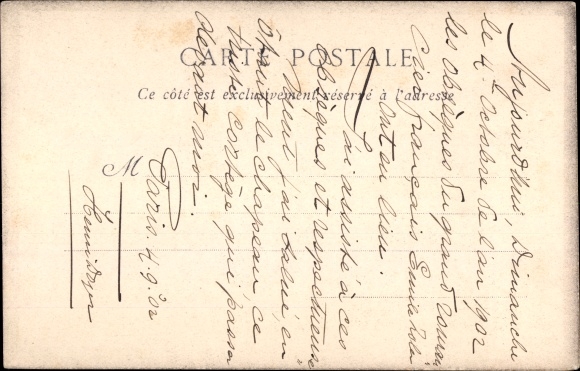 CARTE POSTALE
Ce côté est exclusivement réservé à l'adresse
M
Aujourd'hui, Dimanche
le 4 Octobre de l'an 1902
les obsèques du grand
français Emile Zola
ont eu lieu.
J'ai assisté à ces
obsèques et respectueuse
ment j'ai salué, en
ôtant le chapeau ce
triste cortège qui passa
devant moi.
Paris 4.9.02
Henri